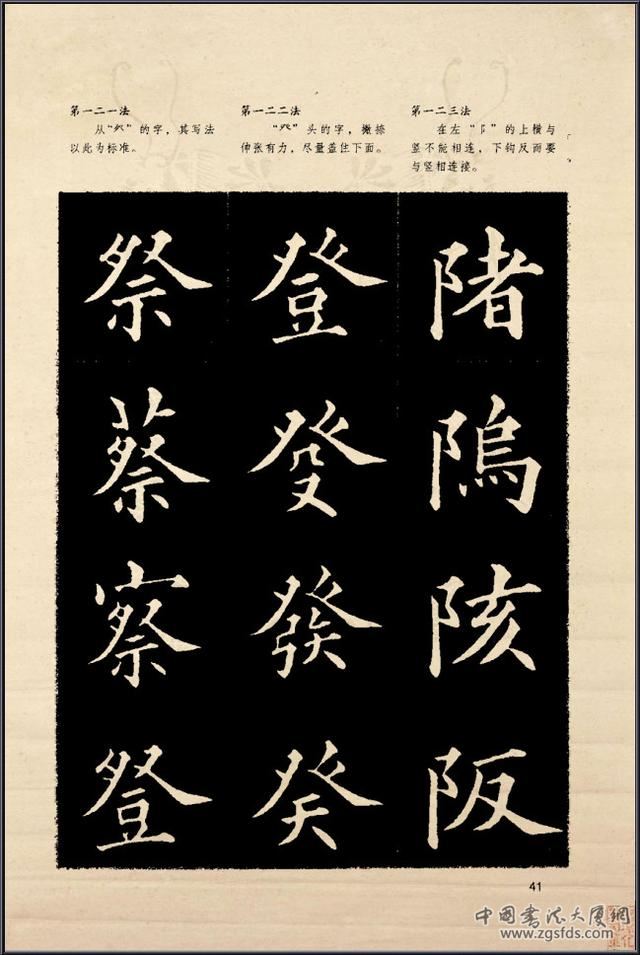 第一二一法
从“”的字，其写法
以此为标准。
第一二二法
“癶”头的字，撇捺
伸张有力，尽量盖住下面。
第一二三法
在左“阝”的上横与
竖不能相连，下钩反而要
与竖相连接。
祭 登 陼
蔡 癹 隖
察 發 陔
豋 癸 阪
41
中国书法大厦網
www.zgsfds.com